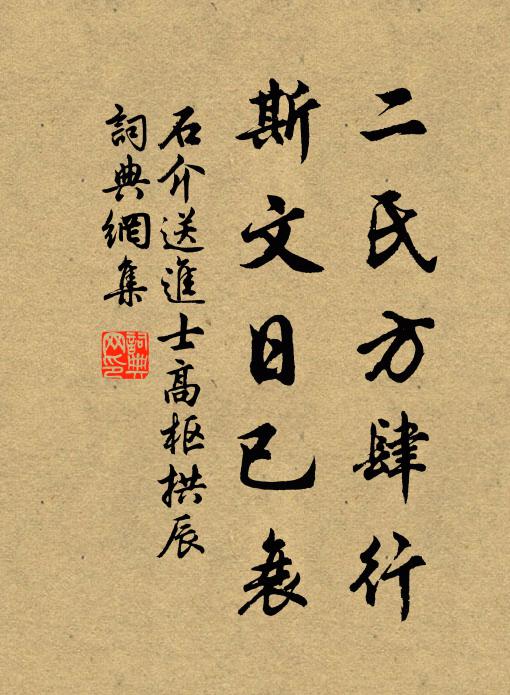 二氏方肆行
斯文日已衰
石介送進士高枢拱辰
詞典網集
詞典网印